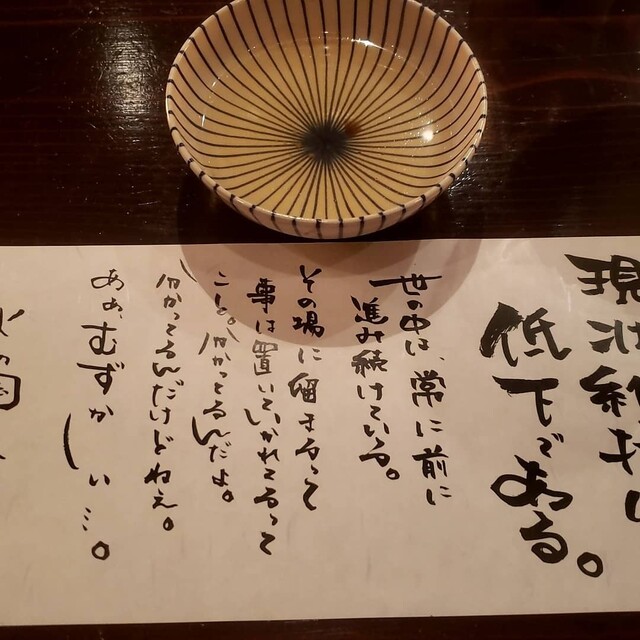 現状維持は
低下である。
世の中は、常に前に
進み続けている。
その場に留まるって
事は置いていかれてるって
こーと。分かってるんだよ。
分かってるんだけどねぇ。
あぁ、むずかしい…。